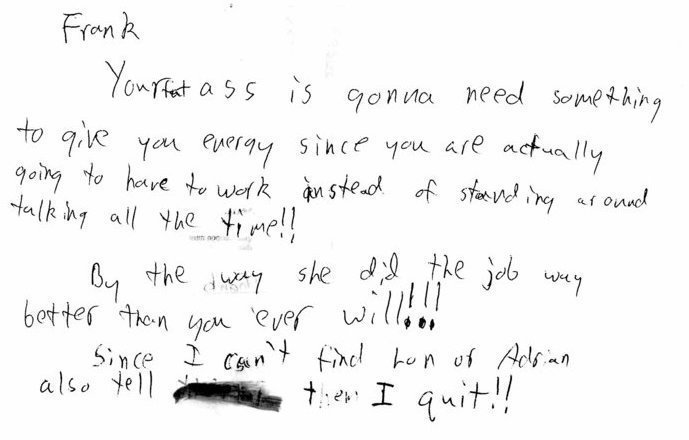 Frank
Your fat ass is gonna need something
to give you energy since you are actually
going to have to work instead of standing around
talking all the time!!
By the way she did the job way
better than you ever will!!!
Since I can't find Lon or Adrian
also tell them I quit!!